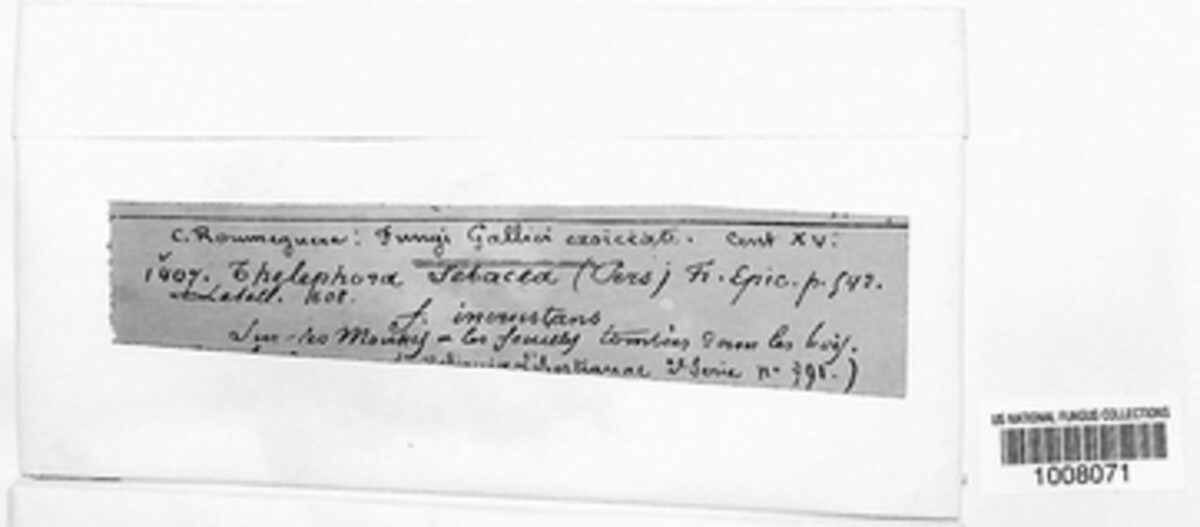 C. Roumeguere: Fungi Gallici exsiccati. Cent XV:
1407. Thelephora Sebacea (Pers) Fr. Epic. p. 542.
f. incrustans
Sur les Mousses & les feuilles tombées dans les bois.
Libertianae 2e Serie nº 391.)
US NATIONAL FUNGUS COLLECTIONS
1008071